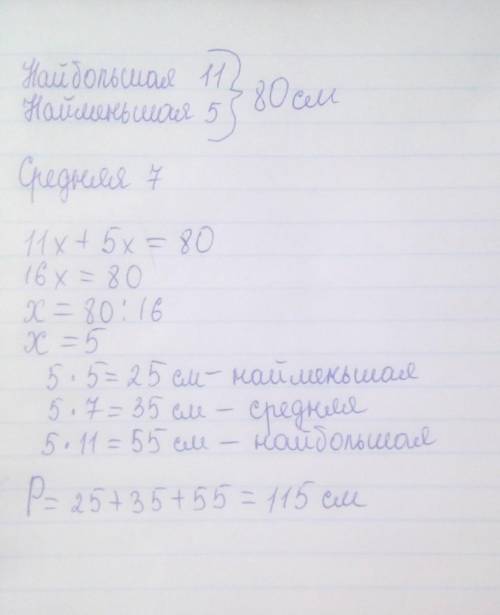 Найбольшая 11 } 80 см
Найменьшая 5
Средняя 7
11x + 5x = 80
16x = 80
x = 80 : 16
x = 5
5 · 5 = 25 см - найменьшая
5 · 7 = 35 см - средняя
5 · 11 = 55 см - найбольшая
P = 25 + 35 + 55 = 115 см